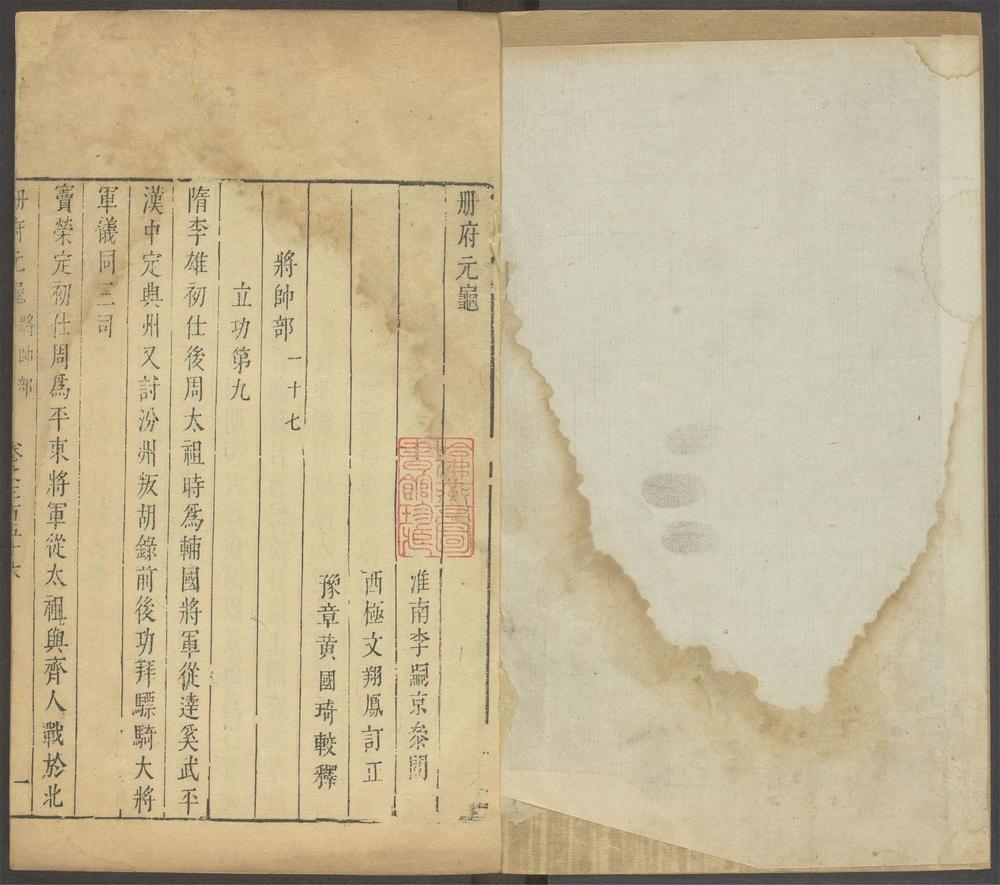 册府元龜
淮南李嗣京叅閱
西極文翔鳳訂正
豫章黄國琦較釋
將帥部 一十七
立功第九
隋李雄初仕後周太祖時爲輔國將軍從達奚武平
漢中定興州又討汾州叛胡錄前後功拜驃騎大將
軍儀同三司
竇榮定初仕周爲平東將軍從太祖與齊人戰於北
册府元龜 將帥部
一
哈佛燕京圖書館珍藏